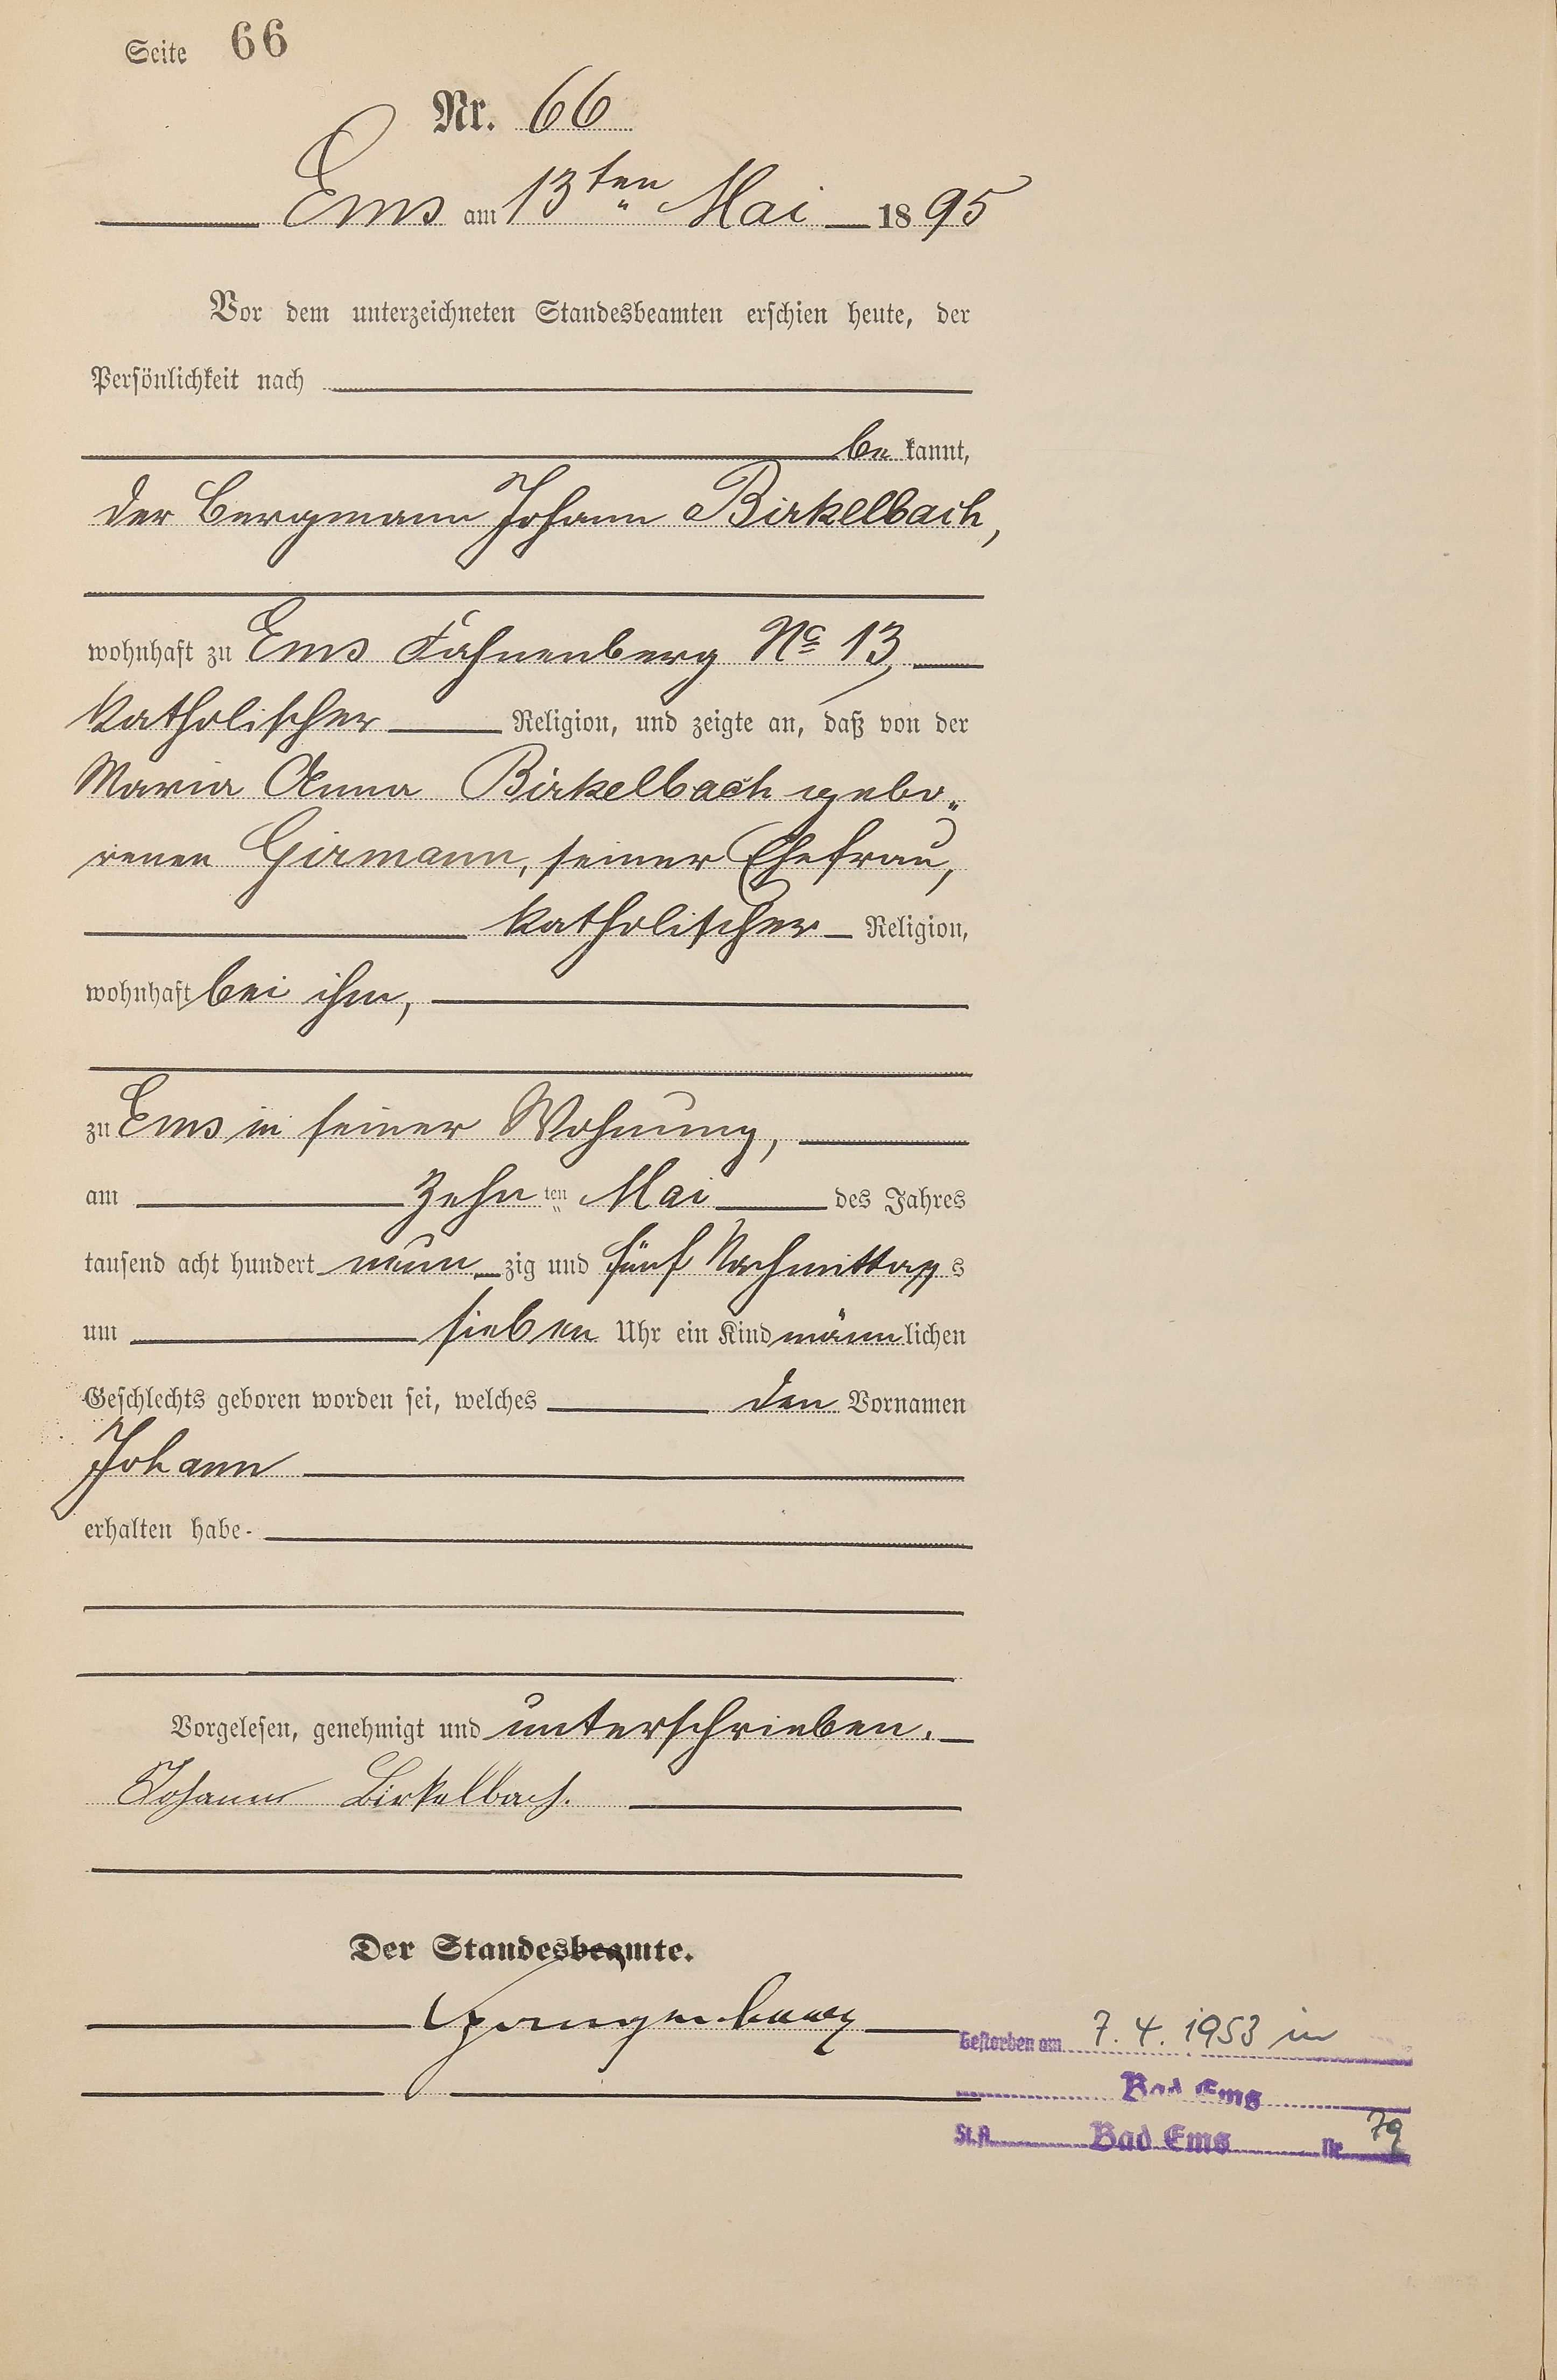 Seite 66
Nr. 66
Ems am 13ten Mai 1895
Vor dem unterzeichneten Standesbeamten erschien heute, der
Persönlichkeit nach
be kannt,
der Bergmann Johann Birkelbach,
wohnhaft zu Ems Fahnenberg No 13,
katholischer Religion, und zeigte an, daß von der
Maria Anna Birkelbach gebo„
renen Girmann, seiner Ehefrau,
katholischer Religion,
wohnhaft bei ihm,
zu Ems in seiner Wohnung,
am zehn ten Mai des Jahres
tausend acht hundert neun zig und fünf Nachmittags
um sieben Uhr ein Kind männlichen
Geschlechts geboren worden sei, welches den Vornamen
Johann
erhalten habe.
Vorgelesen, genehmigt und unterschrieben.
Johann Birkelbach.
Der Standesbeamte.
Gestorben am 7.4.1953 in
Bad Ems
St.A. Bad Ems Nr. 79